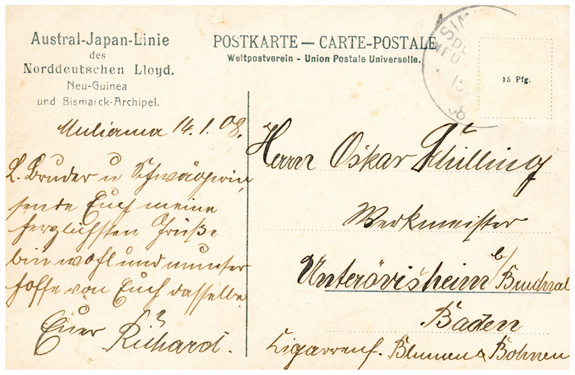 Austral-Japan-Linie
des
Norddeutschen Lloyd.
Neu-Guinea
und Bismarck-Archipel.
POSTKARTE — CARTE-POSTALE
Weltpostverein - Union Postale Universelle.
15 Pfg.
Muliama 14.1.08.
L. Bruder u Schwägerin
sende Euch meine
herzlichsten Grüße
bin wohl und munter
hoffe von Euch dasselbe
Euer Richard.
Herrn Oskar
Werkmeister
Unteröwisheim b/ Bruchsal
Baden
Cigarrenf. Blumen & Bohnen